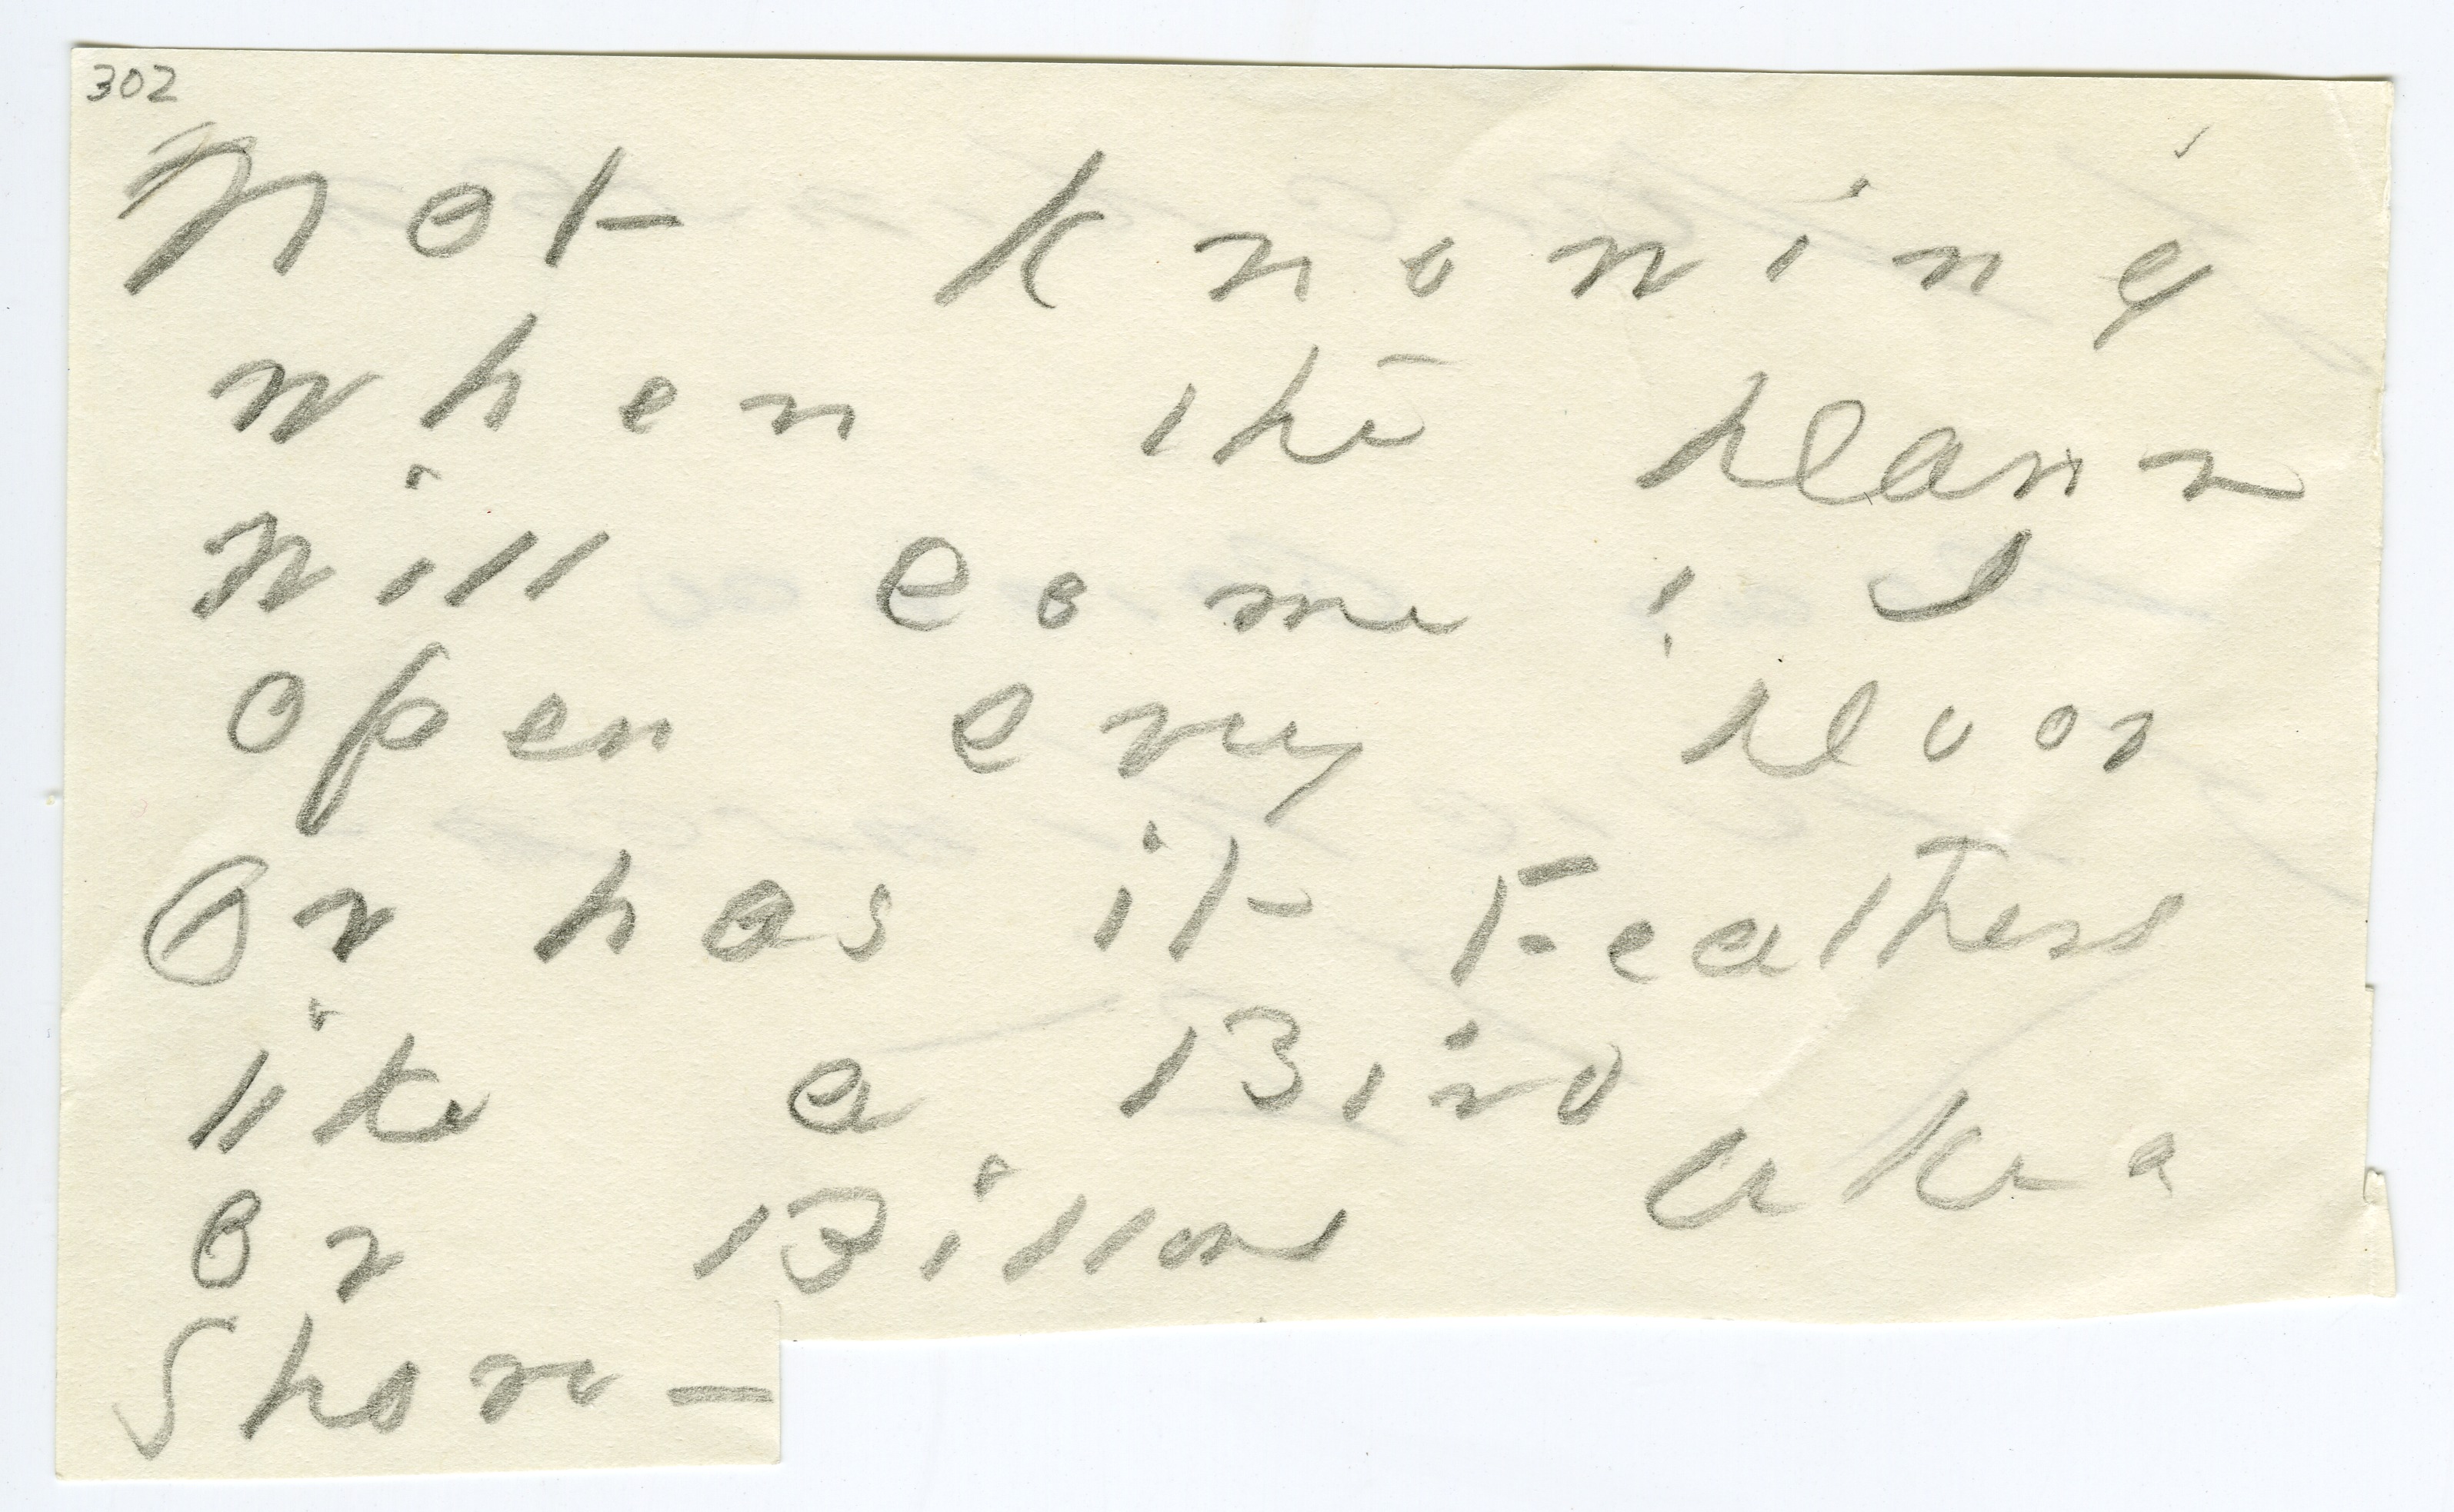 302
Not knowing
when the Dawn
will come ! I
open every Door
Or has it Feathers
like a Bird
Or Billows like a
Shore —